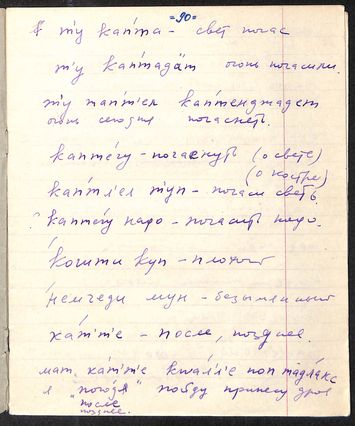 =90=
тӯ ка́пта – свет погас
тӯ ка́птадӓт огонь погасили.
тӯ тап́т'ел ка́птенджадет
огонь сегодня погаснет.
капте́гу – погаснуть (о свете)
(о костре)
ка́птл'ел тӯп – погаси свет.
? капте́гу надо – погасить надо.
ко́шти куп – плохой
не́мгеди мун – безымянный
ка́т'т'е – после, позднее.
мат ка́т'т'е квал'л'е поп тадла́кс
я "погодя" пойду принесу дров
"после
позднее.